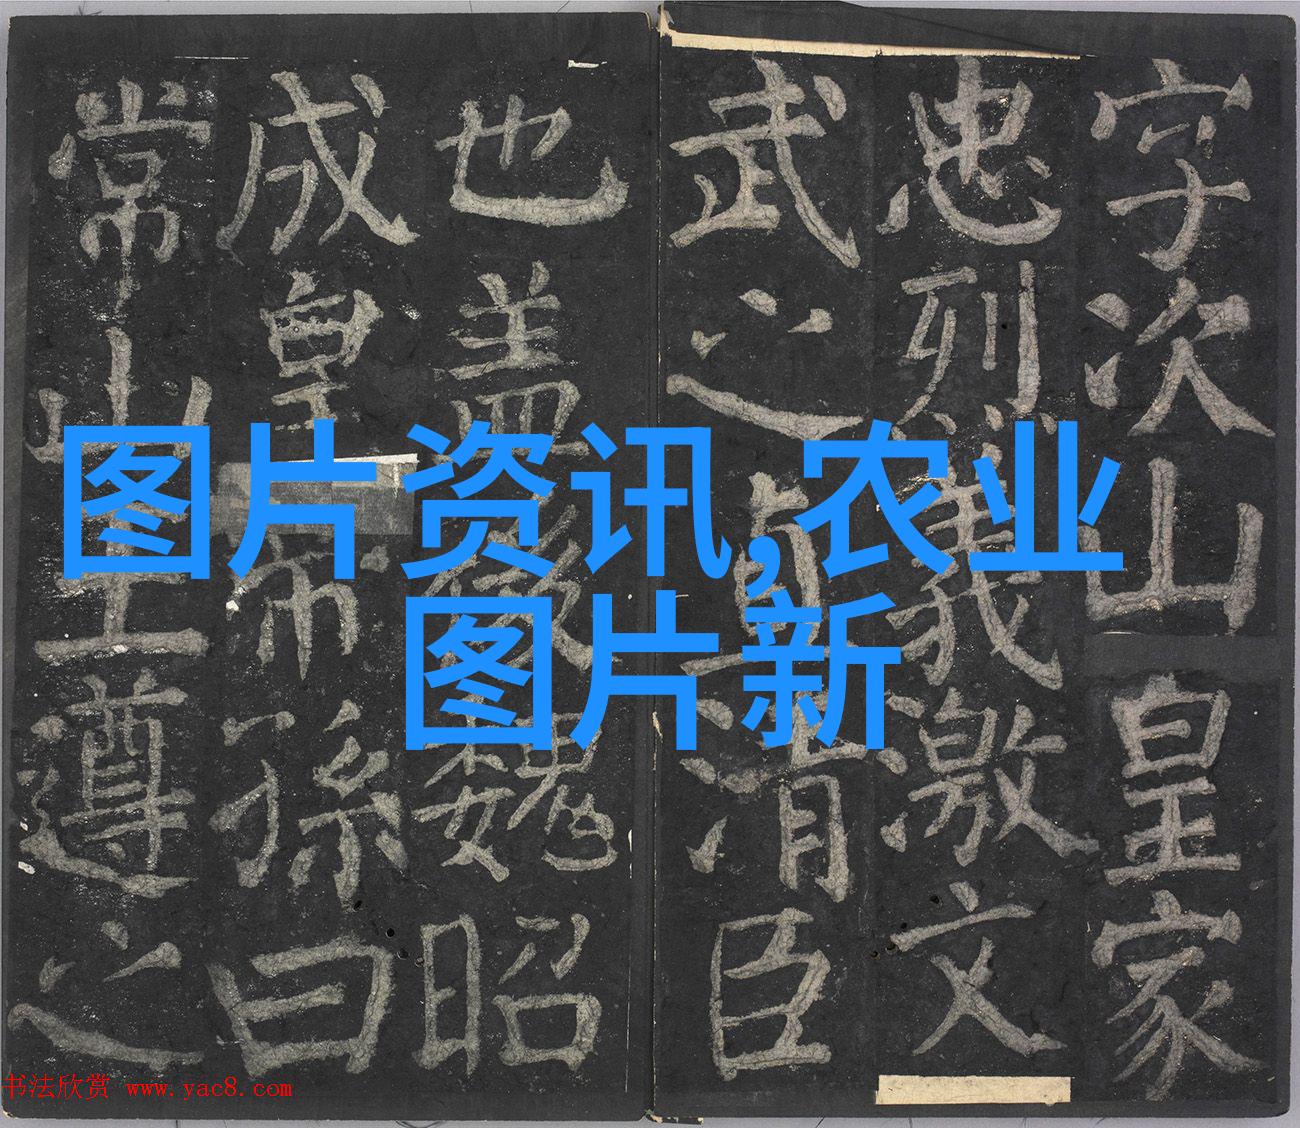 字次山皇家
忠烈義激文
武之直清臣
也盖後魏昭
成皇帝孫曰
常山王遵之
图片资讯,农业
图片新
书法欣赏 www.yac8.com